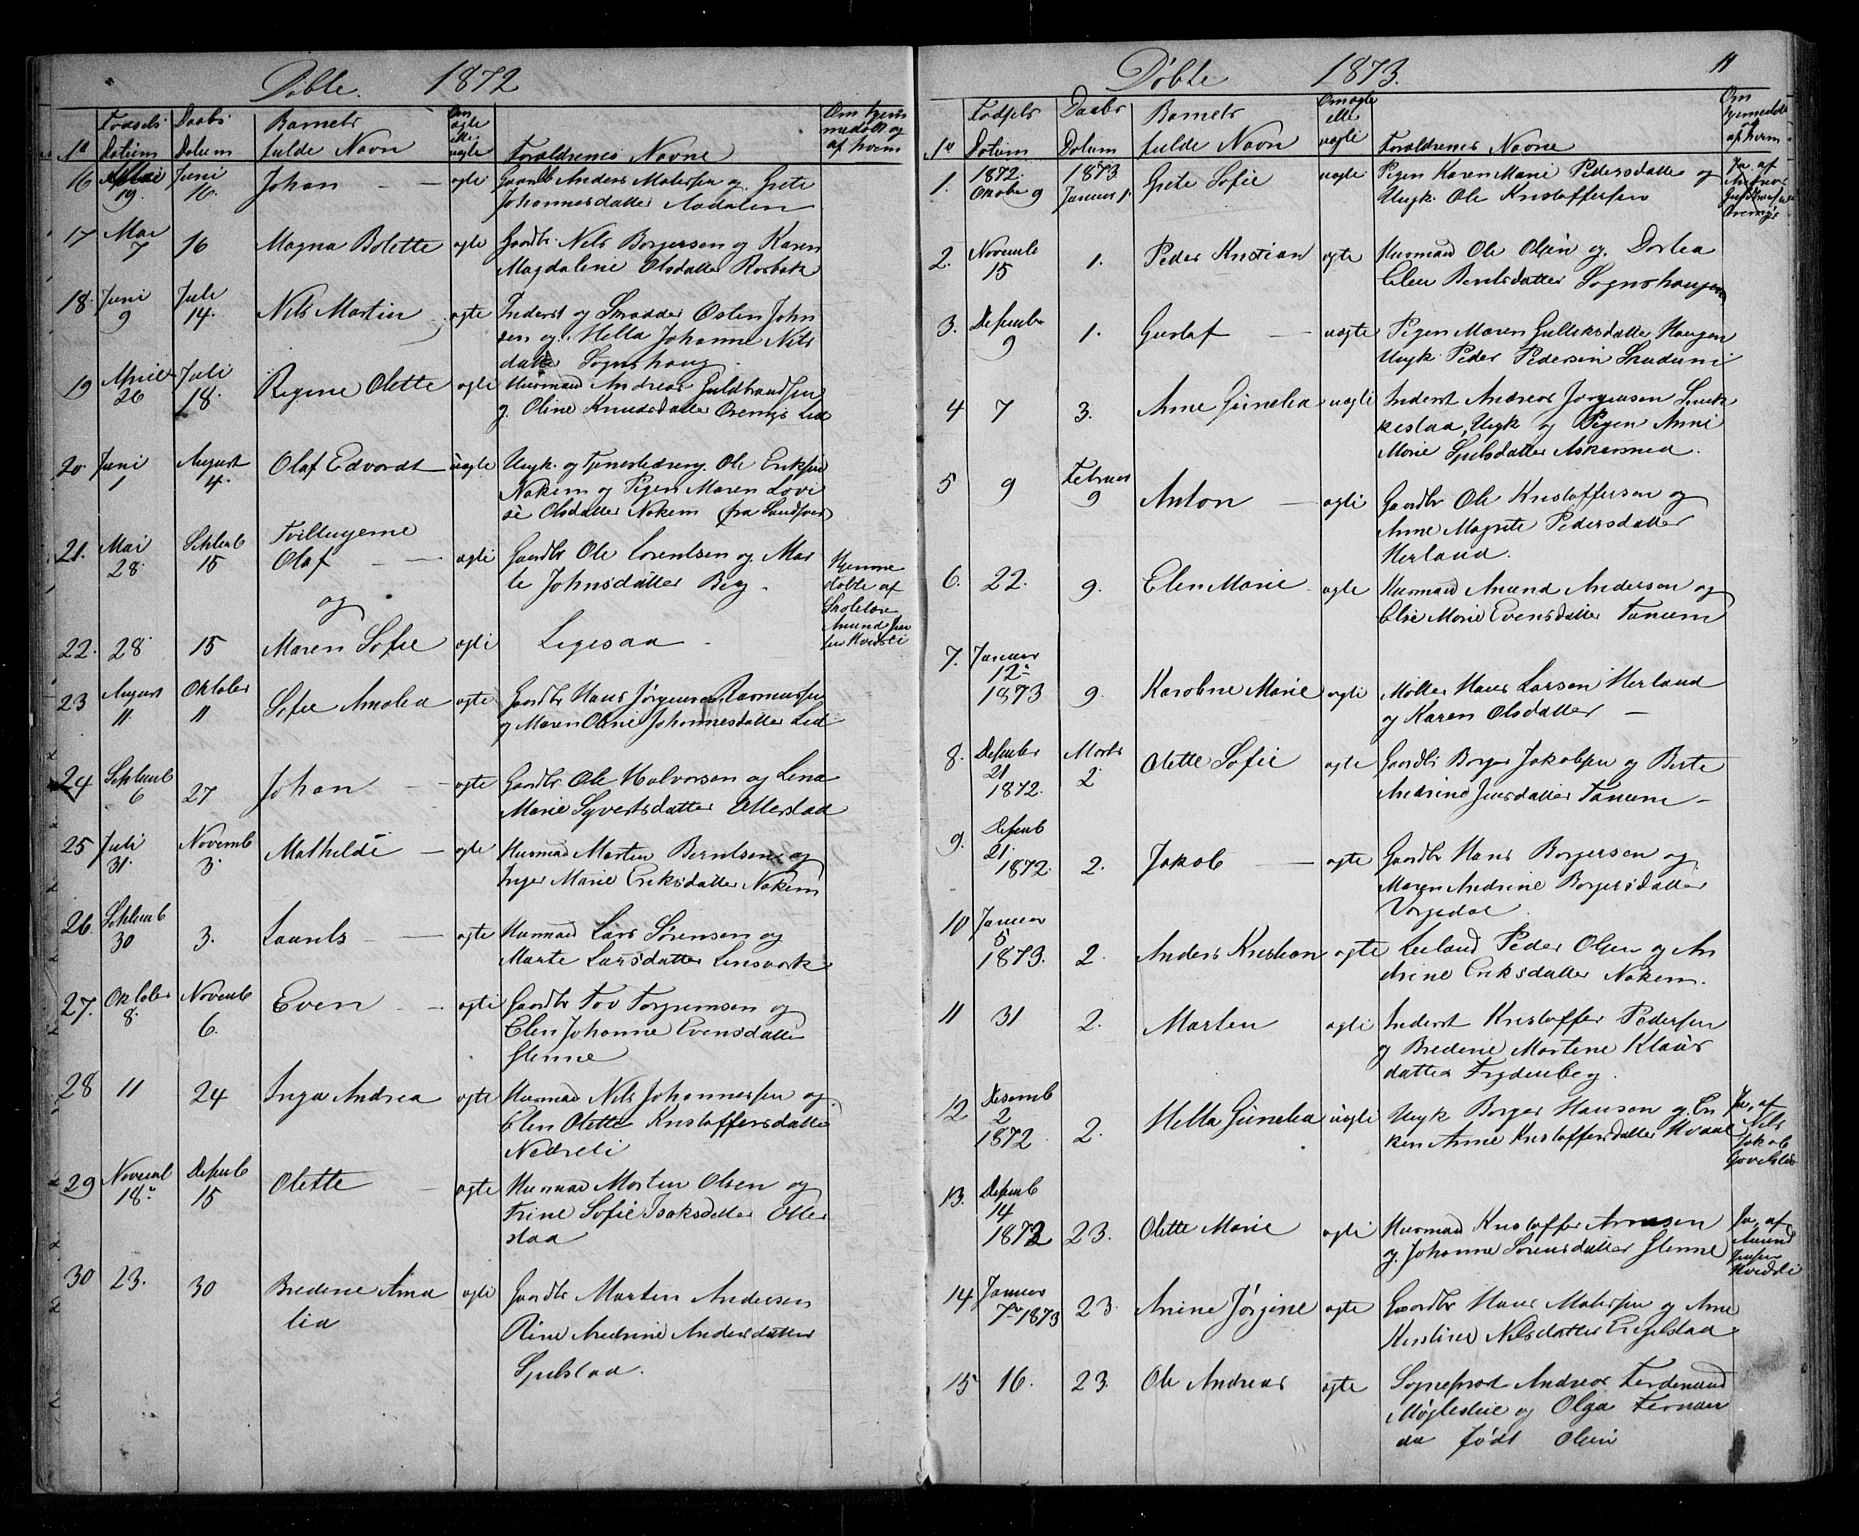 Døbte. 1872
Nº Fødsels Datum Daabs Datum Barnets fulde Navn Om ægte eller uægte Forældrenes Navne Om hjemmedøbt og af hvem
16 Mai 19. Juni 16. Johan - ægte Gaardb Anders Mathisen og Grete
Johannesdatter Aadalen
17 Mai 7 16 Magna Bolette ægte Gaardbr Nils Borgersen og Karen
Magdalene Olsdatter Rosbak
18. Juni 9 Juli 14. Nils Martin ægte Inderst og Skrædder Østen John
sen og Hella Johanne Nils
datter Sognshaug
19 April 26 Juli 18. Regine Olette ægte Husmand Andreas Guldbrandsen
og Oline Knudsdatter Lied
20. Juni 1 August 4. Olaf Edvardt uægte Ungk. og Tjenestedreng Ole Eriksen
Nakem og Pigen Maren Lovi
se Olsdatter Nakem fra Sandsvær
21. Mai 28. Septemb 15 Tvillingerne
Olaf - ægte Gaardbr Ole Lorentsen og Mar
te Johnsdatter Berg - Hjemme
døbte af
Skolelærer
Amund Jen
sen Kvidsli
og
22. 28. 15 Maren Sofie ægte Ligesaa -
23 August 11 Oktober 11 Sofie Amalea ægte Gaardbr Hans Jørgensen Rasmussen
og Maren Oline Johannesdatter Lid
24 Septemb 6 27 Johan - ægte Gaardbr Ole Halvorsen og Lena
Marie Syvertsdatter Ollestad
25 Juli 31. Novemb 3. Mathilde - ægte Husmand Morten Berntsen og
Inger Marie Eriksdatter Nakem
26. Septemb 30 3. Laurits - ægte Husmand Lars Sørensen og
Marte Larsdatter
27. Oktober 8. Novemb 6. Even - ægte Gaardbr Tov Torgrimsen og
Elen Johanne Evensdatter
Glenne
28 11 24 Inga Andrea ægte Husmand Nils Johannessen og
Elen Olette Kristoffersdatter
Nedreli
29 Novemb 18. Desemb 15 Olette - ægte Husmand Morten Olsen og
Trine Sofie Isaksdatter Olle
stad
30 23. 30 Bredine Ama
lia ægte Gaardbr Morten Andersen
Rine Andrine Andersdatter
Gjulstad.
Døbte 1873. 11
Nº Fødsels Datum Daabs Datum Barnets fulde Navn Om ægte eller uægte Forældrenes Navne Om hjemmedøbt og af hvem
1. 1872. Oktobr 9 1873 Januar 1. Grete Sofie uægte Pigen Karen Marie Pedersdatter og
Ungk. Ole Kristoffersen Ja, af
Andreas
2. Novemb 15 1. Peder Kristian ægte Husmand Ole Olsen og Dortea
Elen Berntsdatter Sognshaugen
3. Desember 9 1. Gustaf - uægte Pigen Maren Gulliksdatter Haugen
Ungk. Peder Pedersen
4 7 3. Anne Gunelia uægte Inderst Andreas Jørgensen
Ungk og Pigen Anne
Marie Gjulsdatter
5 9 Februar 9 Anton - ægte Gaardbr Ole Kristoffersen og
Anne Magrete Pedersdatter
Herland.
6. 22. 9. Elen Marie ægte Husmand Amund Andersen og
Else Marie Evensdatter Tanum
7. Januar 12. 1873 9. Karoline Marie ægte Møller Hans Larsen Herland
og Karen Olsdatter -
8. Desember 21 1872. Marts 2 Olette Sofie ægte Gaardbr Borger Jakobsen og Berte
Andrine Jensdatter Tanum -
9. Desemb 21. 1872. 2. Jakob - ægte Gaardbr Hans Borgersen og
Maren Andrine Borgersdatter
Vorgedal
10 Januar 5 1873. 2. Anders Kristian ægte Leiland Peder Olsen og An
drine Eriksdatter Nakem.
11 31 2. Morten ægte Inderst Kristoffer Pedersen
og Bredine Martine Klaus
datter Frydenberg.
12 Desemb 2 1872. 2. Hella Gunelia uægte Ungk Borger Hansen og En
ken Anne Kristoffersdatter Hvaal Ja, af
Nils
Jakob
13. Desemb 14 1872 23. Olette Marie ægte Husmand Kristoffer Arnesen
og Johanne Sorensdatter Glenne Ja, af
Amund
Jensen
Kvidsli
14 Januar 7- 1873 23. Anine Jørgine ægte Gaardbr Hans Mathisen og Ane
Kirstine Nilsdatter Engelstad
15 16. 23. Ole Andreas ægte Sogneprest Andreas Ferdenand
Møglestue og Olga Fernan
da født Olsen